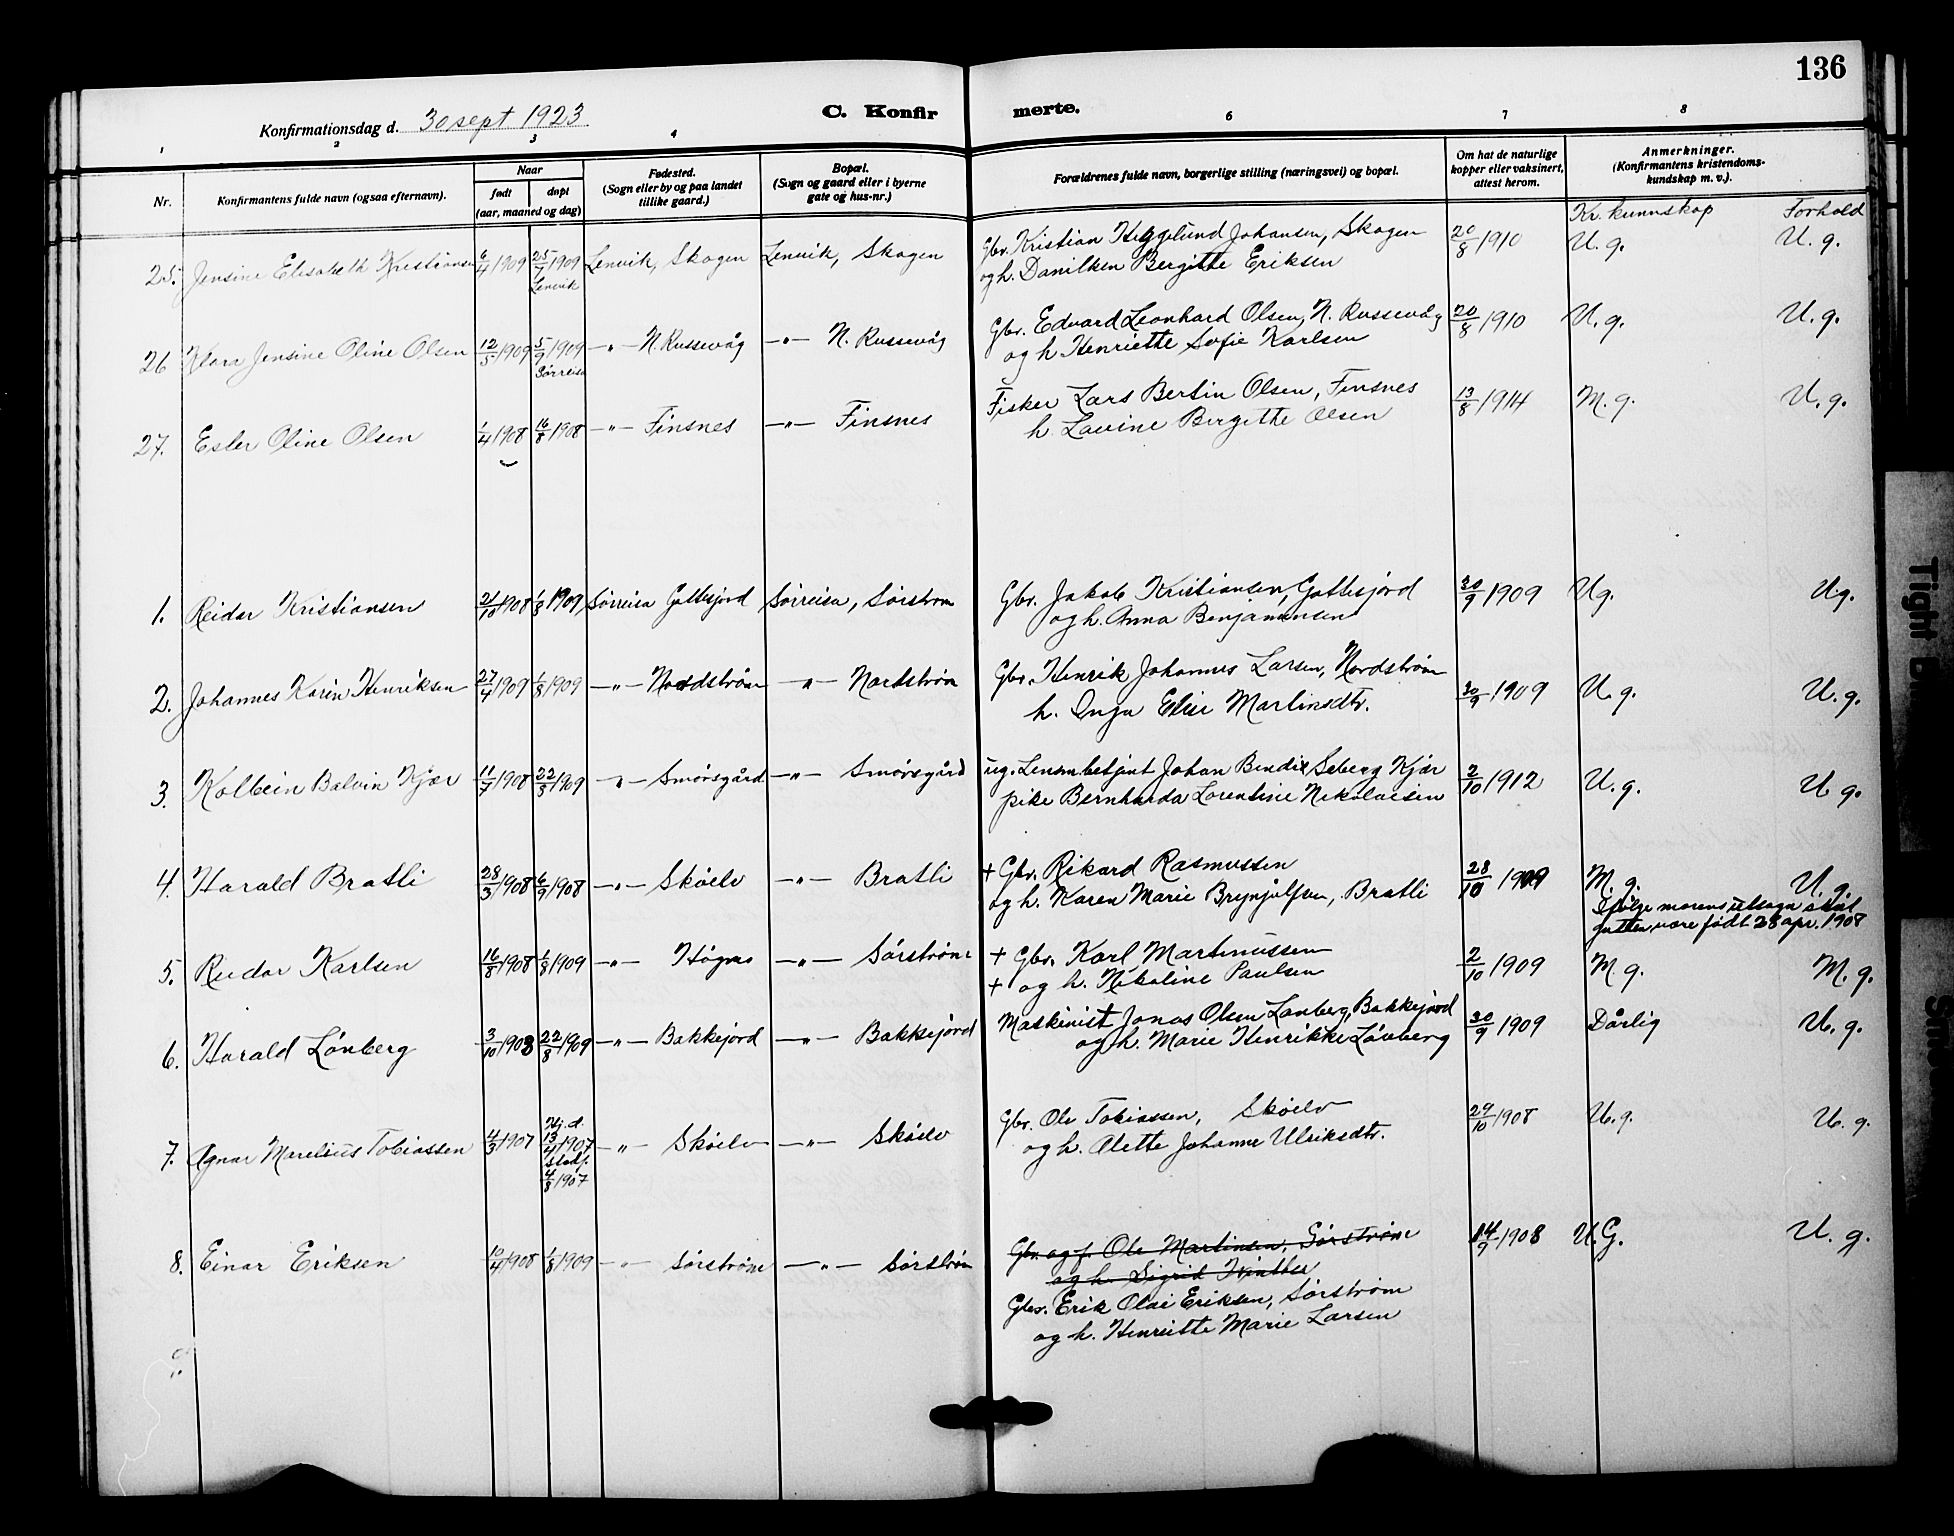 136
Konfirmationsdag d. 30 sept 1923
C. Konfir merte.
1 2 3 4 6 7 8
Nr.
Konfirmantens fulde navn (ogsaa efternavn).
Naar
født døpt
(aar, maaned og dag)
Fødested.
(Sogn eller by og paa landet
tillike gaard.)
Bopæl.
(Sogn og gaard eller i byerne
gate og hus-nr.)
Forældrenes fulde navn, borgerlige stilling (næringsvei) og bopæl.
Om hat de naturlige
kopper eller vaksinert,
attest herom.
Anmerkninger.
(Konfirmantens kristendoms-
kundskap m. v.).
Kr. kunnskap Forhold
25. Jensine Elisabeth Kristiansen 6/4 1909 25/7 1909 Lenvik, Skogen Lenvik, Skogen Gbr. Kristian Heggelund Johansen, Skogen 20/8 1910 U. g. U. g.
Lenvik og h. Danilken Bergitte Eriksen
26 Klara Jensine Oline Olsen 12/5 1909 5/9 1909 —"— N. Russevåg —"— N. Russevåg Gbr. Edvard Leonhard Olsen, N. Russevåg 20/8 1910 U. g. U. g.
Sørreisa og h Henriette Sofie Karlsen
27. Ester Oline Olsen 1/4 1908 16/8 1908 —"— Finsnes —"— Finsnes Fisker Lars Bertin Olsen, Finsnes 13/8 1914 M. g. U. g.
h. Lavine Bergitte Olsen
1. Reidar Kristiansen 21/10 1908 1/8 1909 Sørreisa Gottesjord Sørreisa, Sørstrøm Gbr. Jakob Kristiansen, Gottesjord 30/9 1909 Ug. U.g.
og h. Anna Benjaminsen
2. Johannes Karin Henriksen 27/4 1909 1/8 1909 —"— Nordstrøm —"— Nordstrøm Gbr. Henrik Johannes Larsen, Nordstrøm 30/9 1909 U. g. U. g.
h. Inga Elise Martinsdtr.
3. Kolbein Balvin Kjær 11/7 1908 22/5 1909 —"— Smørsgård —"— Smørsgård ug. Lensm.betjent Johan Bendix Seberg Kjær 2/10 1912 U. g. U. g.
pike Bernharda Lorentine Nikolaisen
4. Harald Bratli 28/3 1908 6/9 1908 —"— Skøelv —"— Bratli + Gbr. Rikard Rasmussen 28/10 1909 M. g. U. g.
og h. Karen Marie Brynjulfsen, Bratli Ifølge morens utsagn skal
gutten være født 28 apr. 1908
5. Reidar Karlsen 16/8 1908 1/8 1909 —"— Høgmo —"— Sørstrøm + Gbr. Karl Martinussen 2/10 1909 M. g. M. g.
+ og h. Nikoline Paulsen
6. Harald Lønberg 3/10 1908 22/8 1909 —"— Bakkejord —"— Bakkejord Maskinist Jonas Olsen Lønberg, Bakkejord 30/9 1909 Dårlig U. g.
og h. Marie Henrikke Lønberg
7. Agnar Marelius Tobiassen 4/3 1907 Hj.d. 13/4 1907 stadf. 4/8 1907 —"— Skøelv —"— Skøelv Gbr. Ole Tobiassen, Skøelv 29/10 1908 U. g. U. g.
og h. Alette Johanna Ulriksdtr.
8. Einar Eriksen 10/4 1908 1/8 1909 —"— Sørstrøm —"— Sørstrøm Gbr. og f. Ole Martinsen, Sørstrøm 14/9 1908 U.G. U. g.
og h. Sigrid
Gbr. Erik Olai Eriksen, Sørstrøm
og h. Henriette Marie Larsen
9.
Tight